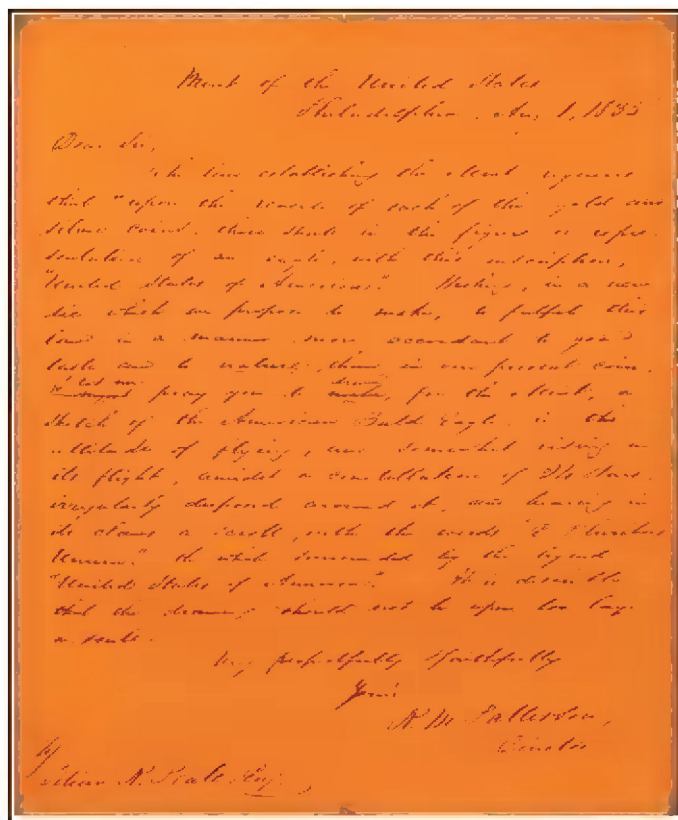 Mint of the United States
Philadelphia. Aug 1, 1835
Dear Sir,
The law establishing the Mint requires
that "upon the reverse of each of the gold and
silver coins, there shall be the figure or repre-
sentation of an eagle, with this inscription,
"United States of America." Wishing, in a new
die which we propose to make, to fulfil this
law in a manner more accordant to good
taste and to nature, than in our present coin,
let me
pray you to draw, for the Mint, a
sketch of the American Bald Eagle in the
attitude of flying, and somewhat rising in
its flight, amidst a constellation of stars
irregularly disposed around it, and bearing in
its claws a scroll, with the words "E Pluribus
Unum." the whole surrounded by the legend
"United States of America". It is desirable
that the drawing should not be upon too large
a scale.
Very respectfully & faithfully
Yours
R. M. Patterson,
Director
Titian R. Peale Esq.